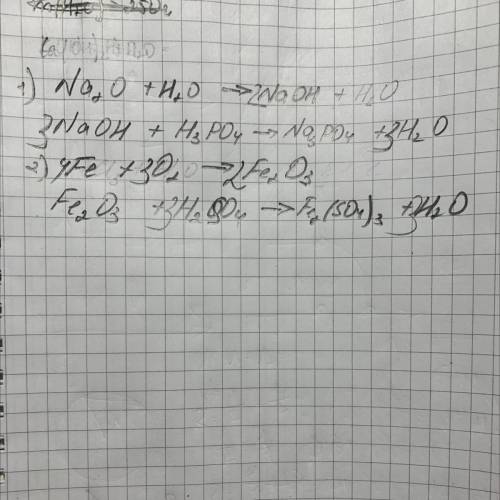 1) Na₂O + H₂O → 2NaOH + H₂O
3NaOH + H₃PO₄ → Na₃PO₄ + 3H₂O
2) 4Fe + 3O₂ → 2Fe₂O₃
Fe₂O₃ + 3H₂SO₄ → F₂(SO₄)₃ + 3H₂O